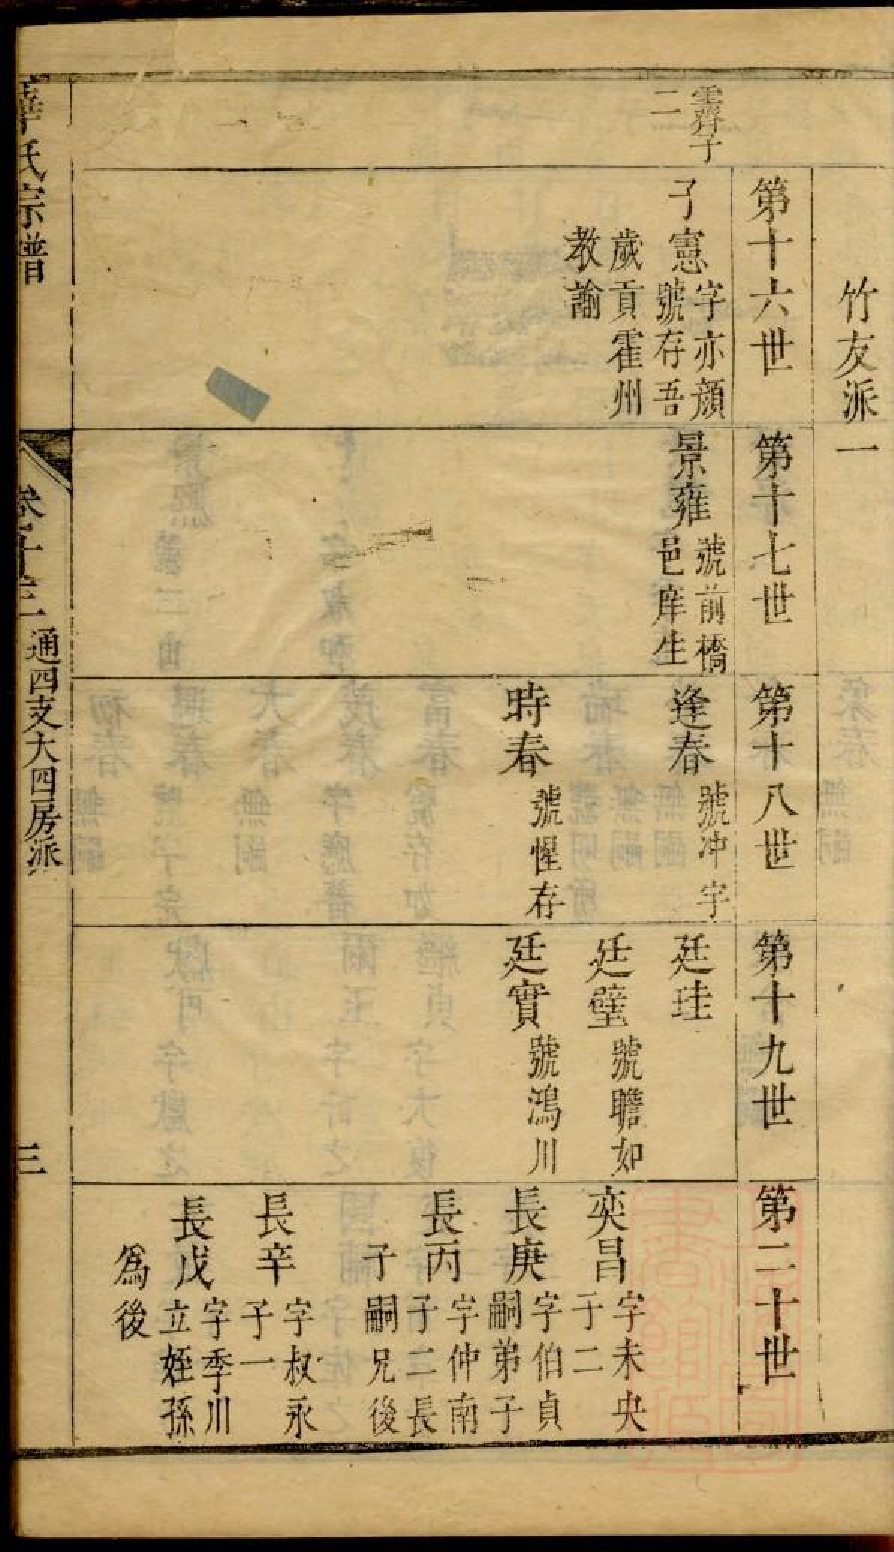 竹友派一
第十六世
霽子
二
子憲
字亦顔
號存吾
歲貢霍州
教諭
第十七世
景雍
號前橋
邑庠生
第十八世
逢春
號冲宇
時春
號惺存
第十九世
廷珪
廷璧
號瞻如
廷實
號鴻川
第二十世
奕昌
字未央
子二
長庚
字伯貞
嗣弟子
長丙
字仲南
子二長
子嗣兄後
長辛
字叔永
子一
長戊
字季川
立姪孫
為後
氏宗譜
通四支大四房派
三